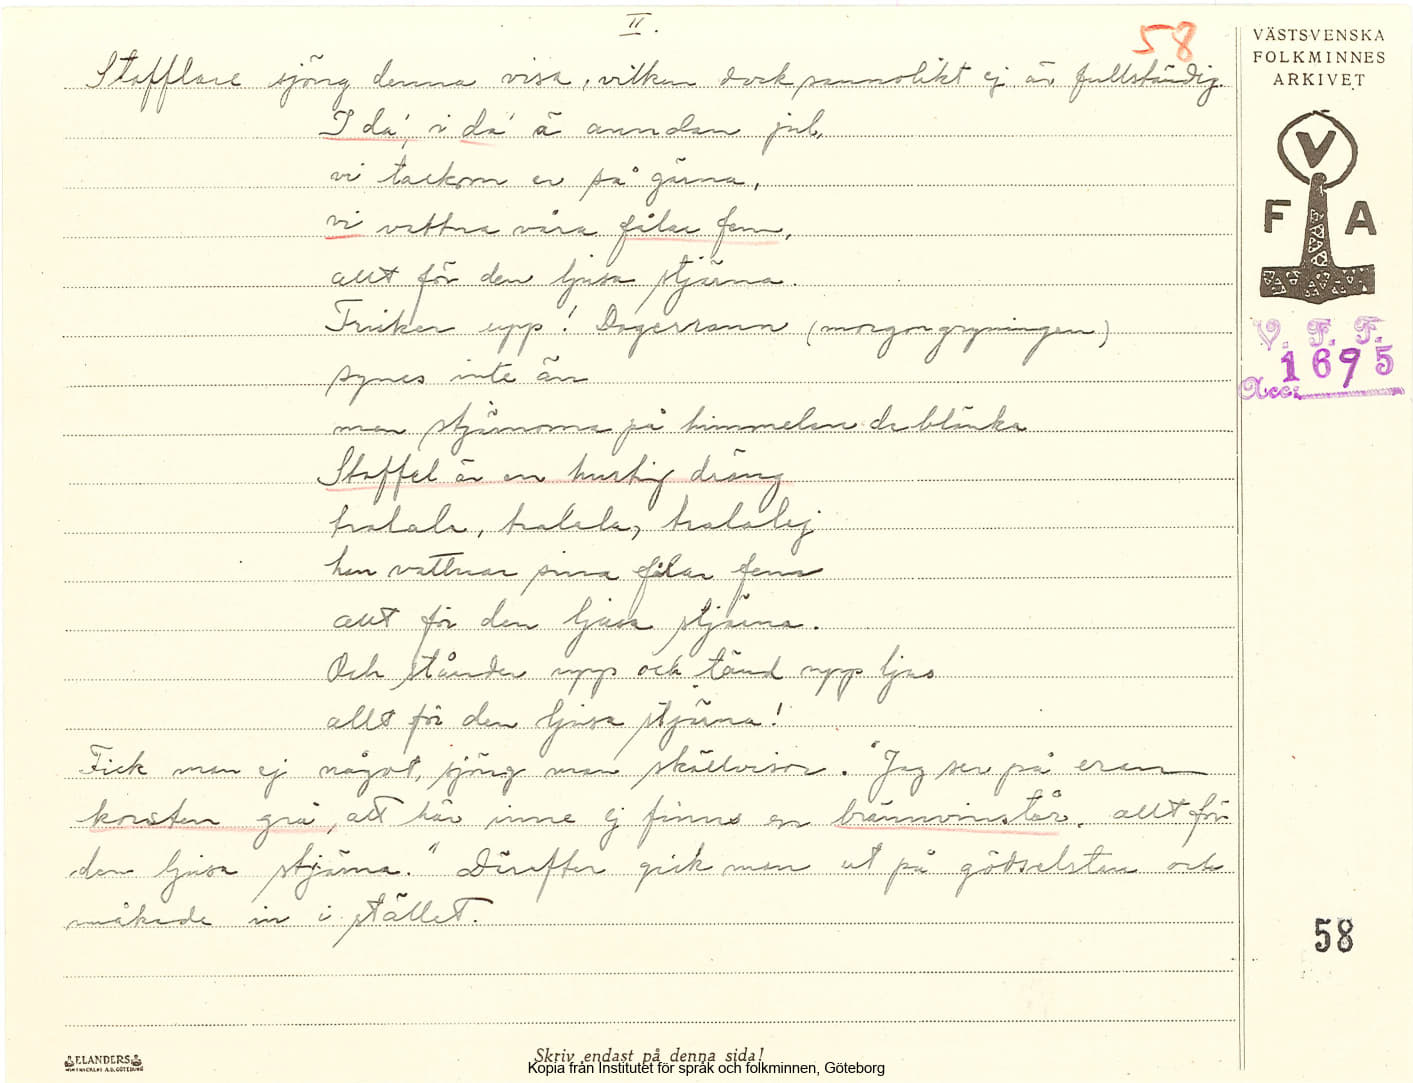 II.
58
VÄSTSVENSKA
FOLKMINNES
ARKIVET
V
F A
V. F. F.
Acc: 1695
Stafflare sjöng denna visa, vilken dock sannolikt ej är fullständig.
I da', i da' ä anndan jul,
vi tackom er så gärna,
vi vattna våra fålar fem,
allt för den ljusa stjärna.
upp! Dagerrann (morgongryningen)
synes inte än
men stjärnorna på himmelen de blänka
Staffel är en hurtig dräng
tralala, tralala, tralalej
han vattnar sina fålar fema
allt för den ljusa stjärna.
Och stånden upp och tänd upp ljus
allt för den ljusa stjärna!
Fick man ej något, sjöng man skällvisor. "Jag ser på eran
korsten grå, att här inne ej finns en brännvinstår, allt för
den ljusa stjärna." Därefter gick man ut på gödselsten och
måkade in i stället.
58
ELANDERS
Skriv endast på denna sida!
Kopia från Institutet för språk och folkminnen, Göteborg